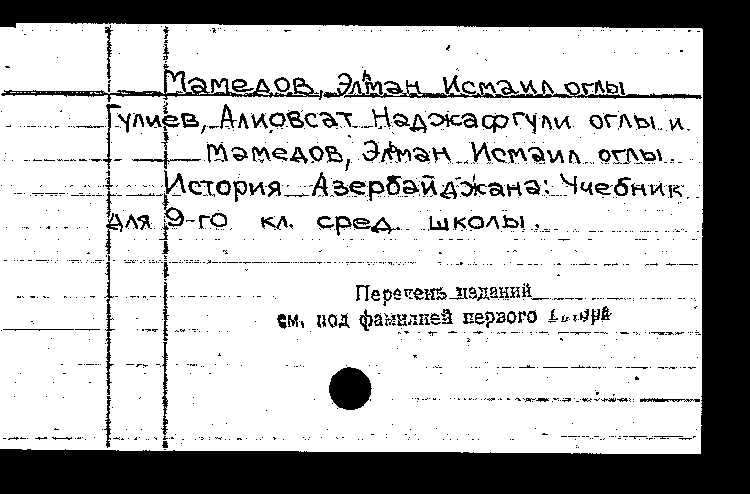 Мамедов, Элман Исмаил оглы
Гулиев, Алиовсат Наджафгули оглы и
Мамедов, Элман Исмаил оглы
История Азербайджана: Учебник
для 9-го кл. сред. школы.
Перечень изданий
см. под фамилией первого